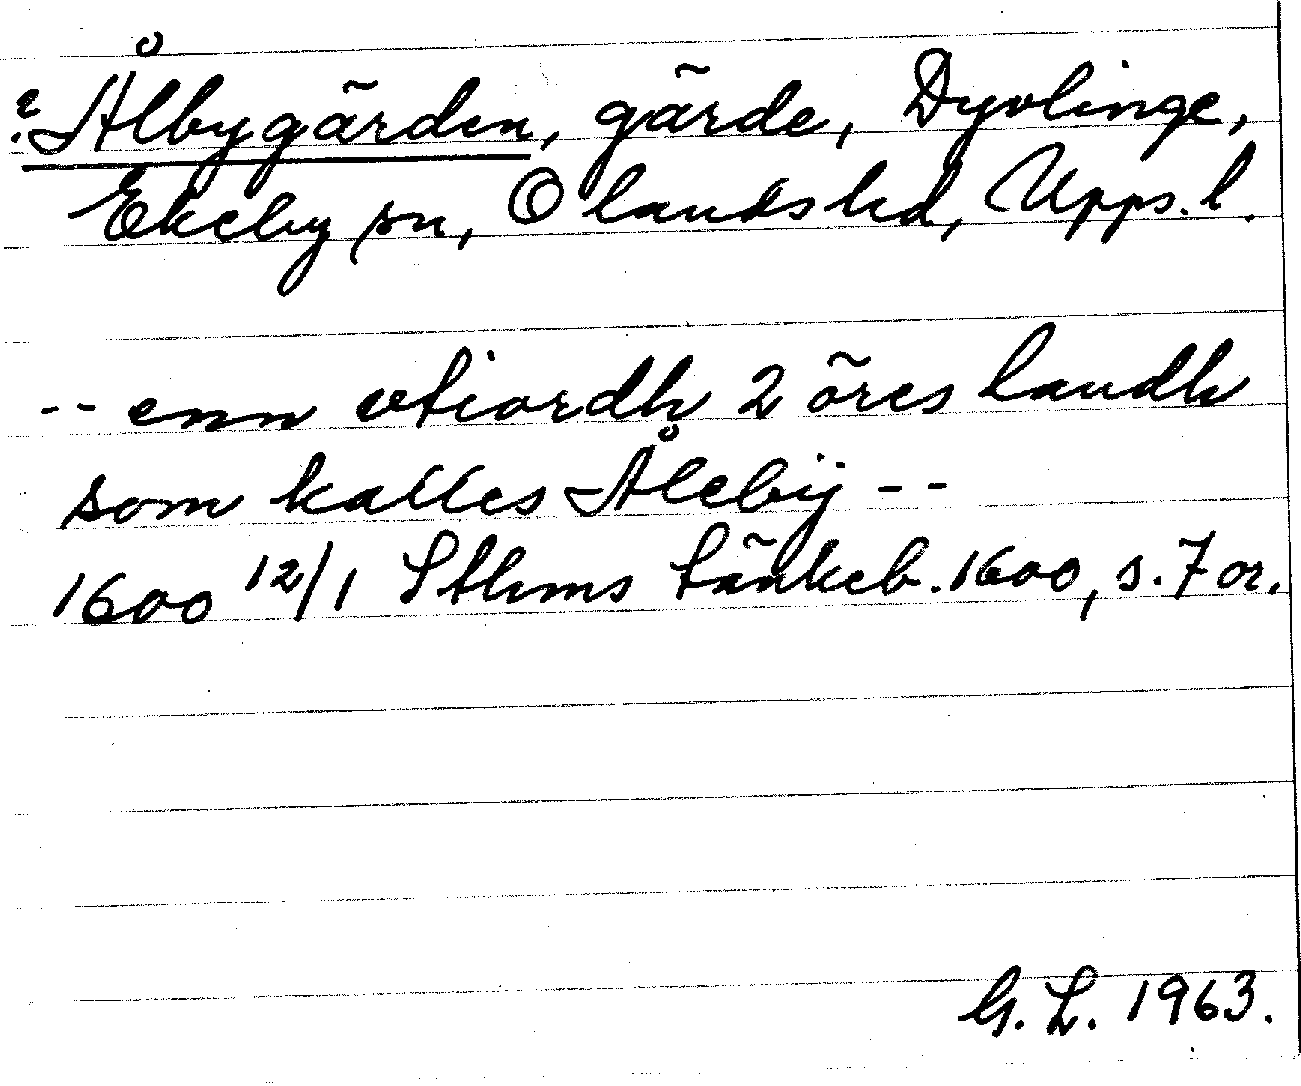 ? Ålbygärden, gärde, Dyvlinge,
Ekeby sn, Olandshd, Upps. l.
-- enn vtiordh 2 öres landh
som kalles Ålebÿ --
1600 12/1 Sthms tänkeb. 1600, s. 7 or.
G. L. 1963.